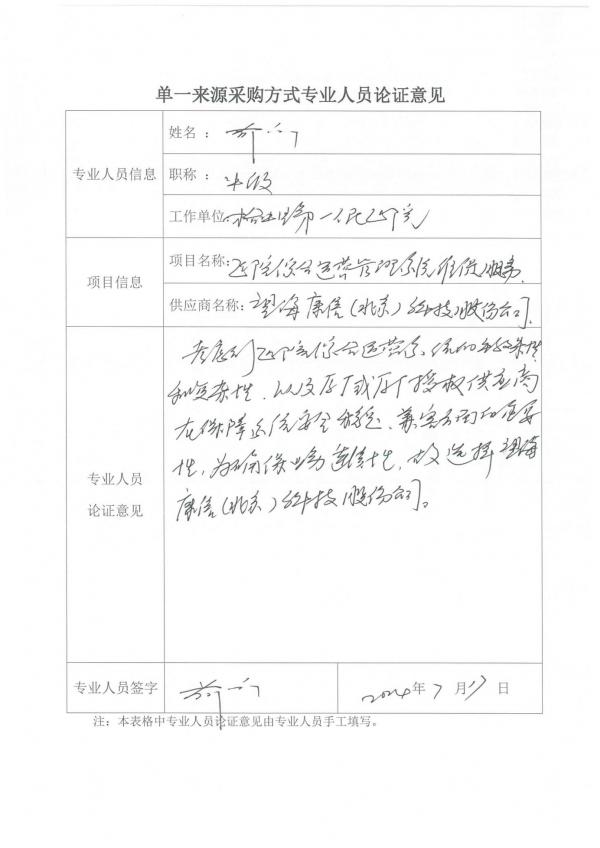 单一来源采购方式专业人员论证意见
专业人员信息
姓名：
职称：
工作单位：第一人民医院
项目信息
项目名称：医院综合运营管理系统维保服务
供应商名称：望海康信（北京）科技股份公司
专业人员
论证意见
考虑到医院综合运营系统的
和复杂性，以及原厂或原厂授权供应商
在保障系统安全稳定、兼容方面的重要
性，为确保业务连续性，故选择望海
康信（北京）科技股份公司。
专业人员签字
2024年7月17日
注：本表格中专业人员论证意见由专业人员手工填写。